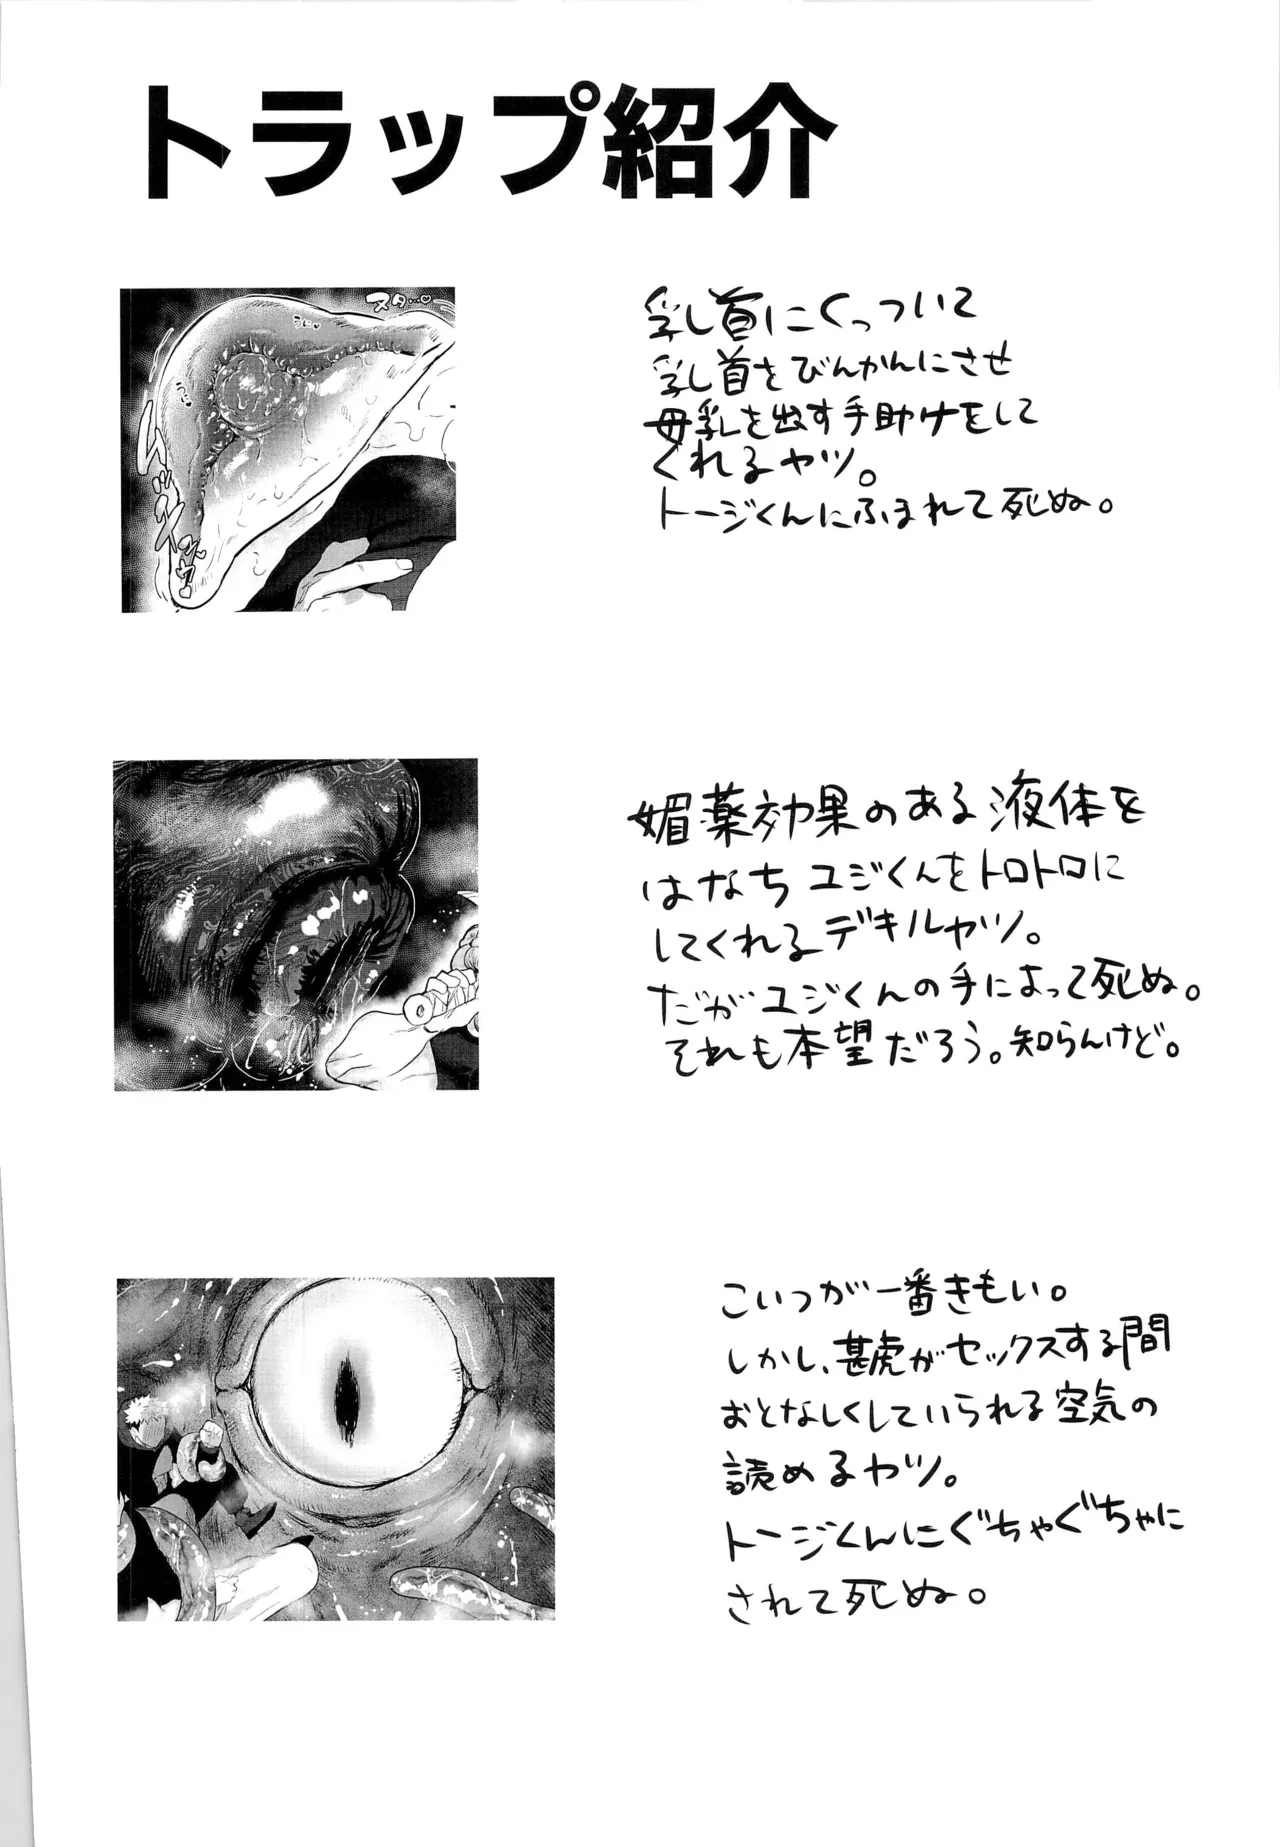 トラップ紹介
乳首にくっついて
乳し首をびんかんにさせ
母乳を出す手助けをして
くれるヤツ。
トージくんにふまれて死ぬ。
媚薬効果のある液体を
はなちユジくんをトロトロに
してくれるデキルヤツ。
だがユジくんの手によって死ぬ。
それも本望だろう。知らんけど。
こいつが一番きもい。
しかし、甚虎がセックスする間
おとなしくしていられる空気の
読めるヤツ。
トージくんにぐちゃぐちゃに
されて死ぬ。